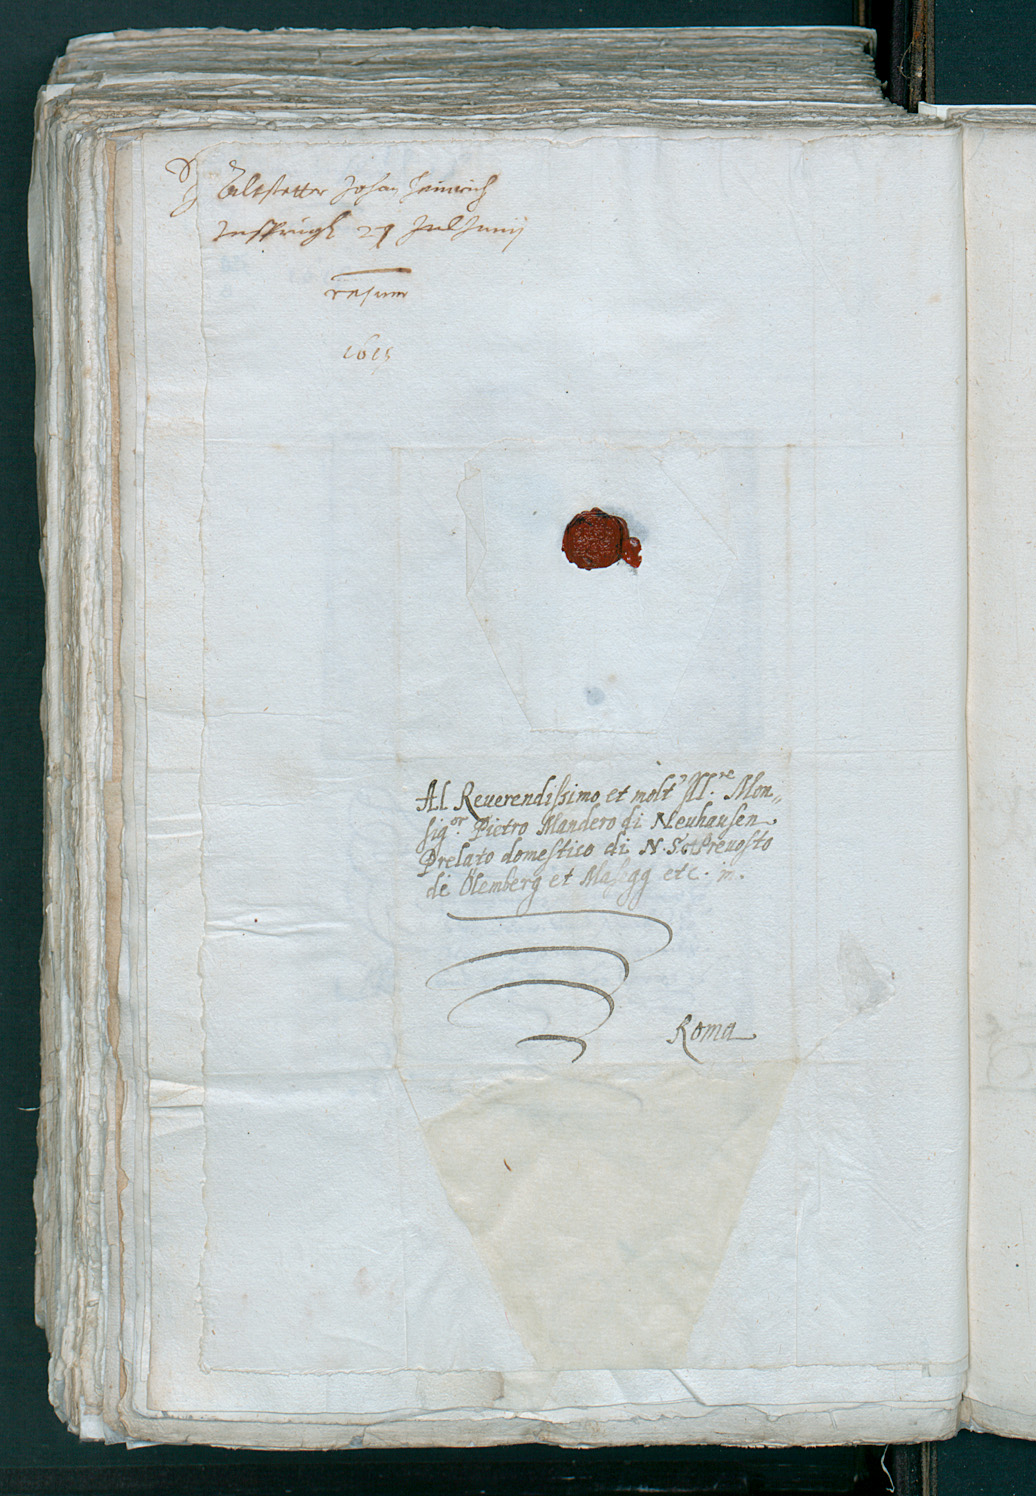 Altstetter Johan Heinrich
Insprugh 27 Juni
1615
Al Reuerendissimo et molt' Ill.re Mon„
sig.or Pietro Mandero di Neuhausen
Prelato domestico di N. S. et Preuosto
di Ölemberg et Masegg etc. in.
Roma